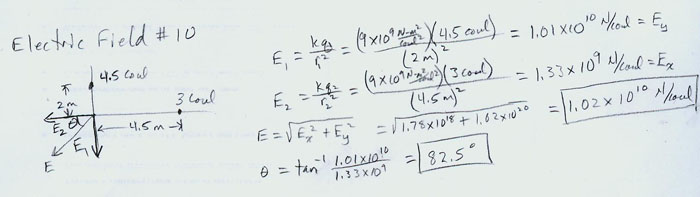 Electric Field #10
4.5 coul
2m
3 coul
E₂ θ
4.5 m
E₁
E
E₁ = kq₁/r₁² = (9x10⁹ N·m²/coul²)(4.5 coul)/(2m)² = 1.01x10¹⁰ N/coul = Ey
E₂ = kq₂/r₂² = (9x10⁹ N·m²/coul²)(3 coul)/(4.5m)² = 1.33x10⁹ N/coul = Ex
E = √Ex² + Ey² = √1.78x10¹⁸ + 1.02x10²⁰ = 1.02x10¹⁰ N/coul
θ = tan⁻¹ 1.01x10¹⁰/1.33x10⁹ = 82.5°